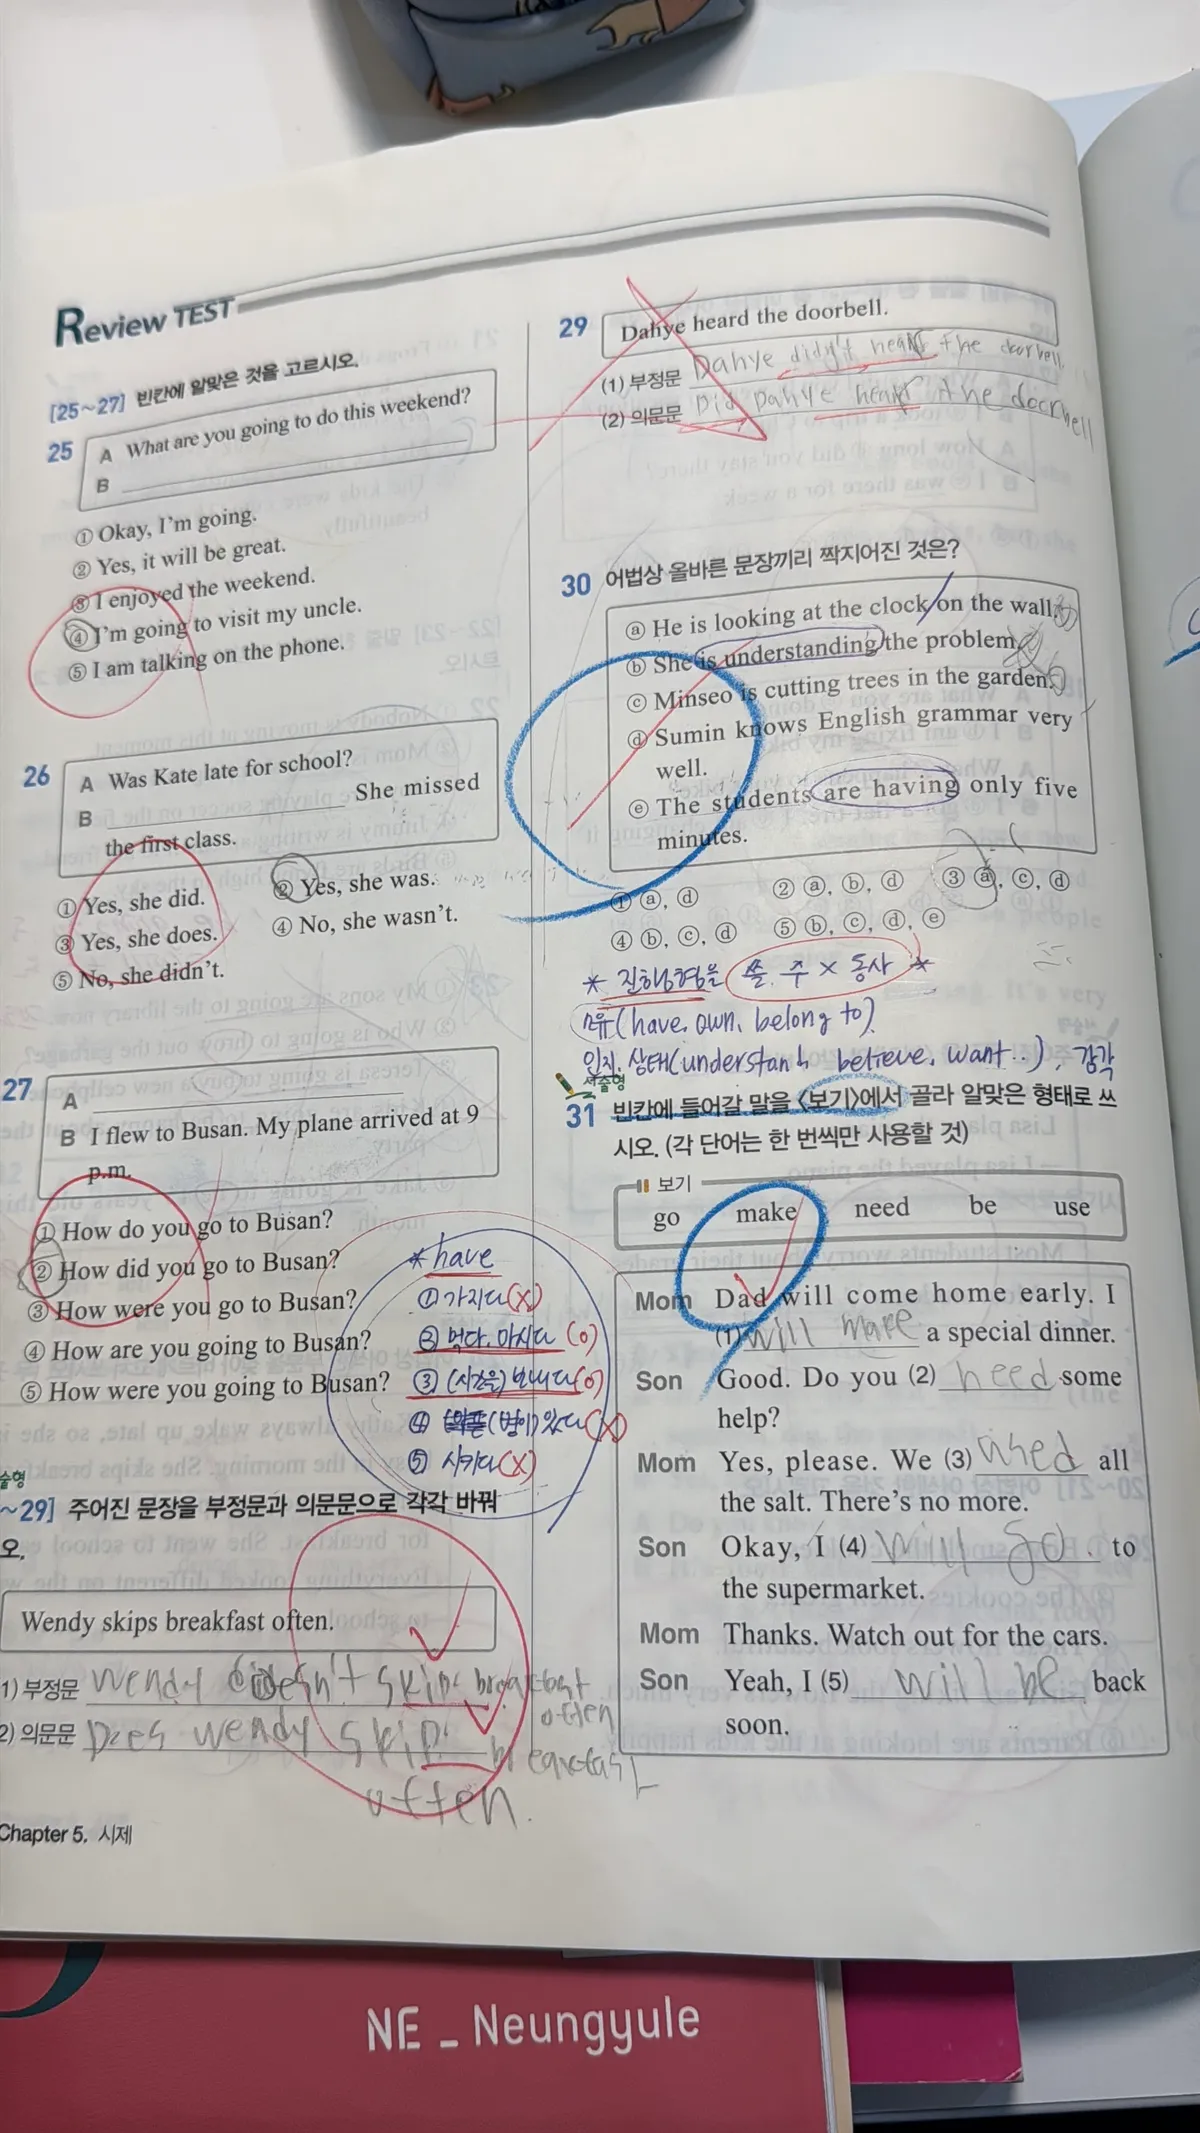 Review TEST
[25~27] 빈칸에 알맞은 것을 고르시오.
25
A What are you going to do this weekend?
B
① Okay, I'm going.
② Yes, it will be great.
③ I enjoyed the weekend.
④ I'm going to visit my uncle.
⑤ I am talking on the phone.
26
A Was Kate late for school?
B She missed
the first class.
① Yes, she did.
② Yes, she was.
③ Yes, she does.
④ No, she wasn't.
⑤ No, she didn't.
27
A
B I flew to Busan. My plane arrived at 9
p.m.
① How do you go to Busan?
② How did you go to Busan?
③ How were you go to Busan?
④ How are you going to Busan?
⑤ How were you going to Busan?
* have
① 가지다 (X)
② 먹다, 마시다 (O)
③ (시간을) 보내다 (O)
④ (병이) 있다 (X)
⑤ 시키다 (X)
술형
~29] 주어진 문장을 부정문과 의문문으로 각각 바꿔
오.
Wendy skips breakfast often.
1) 부정문 Wendy doesn't skip breakfast
often
2) 의문문 Does Wendy skip breakfast
often.
Chapter 5. 시제
29
Dahye heard the doorbell.
(1) 부정문 Dahye didn't hear the doorbell.
(2) 의문문 Did Dahye hear the doorbell
30 어법상 올바른 문장끼리 짝지어진 것은?
ⓐ He is looking at the clock on the wall.
ⓑ She is understanding the problem.
ⓒ Minseo is cutting trees in the garden.
ⓓ Sumin knows English grammar very
well.
ⓔ The students are having only five
minutes.
① ⓐ, ⓓ ② ⓐ, ⓑ, ⓓ ③ ⓐ, ⓒ, ⓓ
④ ⓑ, ⓒ, ⓓ ⑤ ⓑ, ⓒ, ⓓ, ⓔ
* 진행형을 쓸 수 X 동사 *
소유(have, own, belong to)
인지, 상태(understand, believe, want...), 감각
서술형
31 빈칸에 들어갈 말을 <보기>에서 골라 알맞은 형태로 쓰
시오. (각 단어는 한 번씩만 사용할 것)
보기
go make need be use
Mom Dad will come home early. I
(1) will make a special dinner.
Son Good. Do you (2) need some
help?
Mom Yes, please. We (3) used all
the salt. There's no more.
Son Okay, I (4) will go to
the supermarket.
Mom Thanks. Watch out for the cars.
Son Yeah, I (5) will be back
soon.
NE_Neungyule